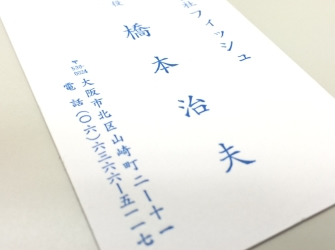 フィッシュ
橋本治夫
〒530-0024
大阪市北区山崎町二ー十一
電話(〇六)六三六六ー